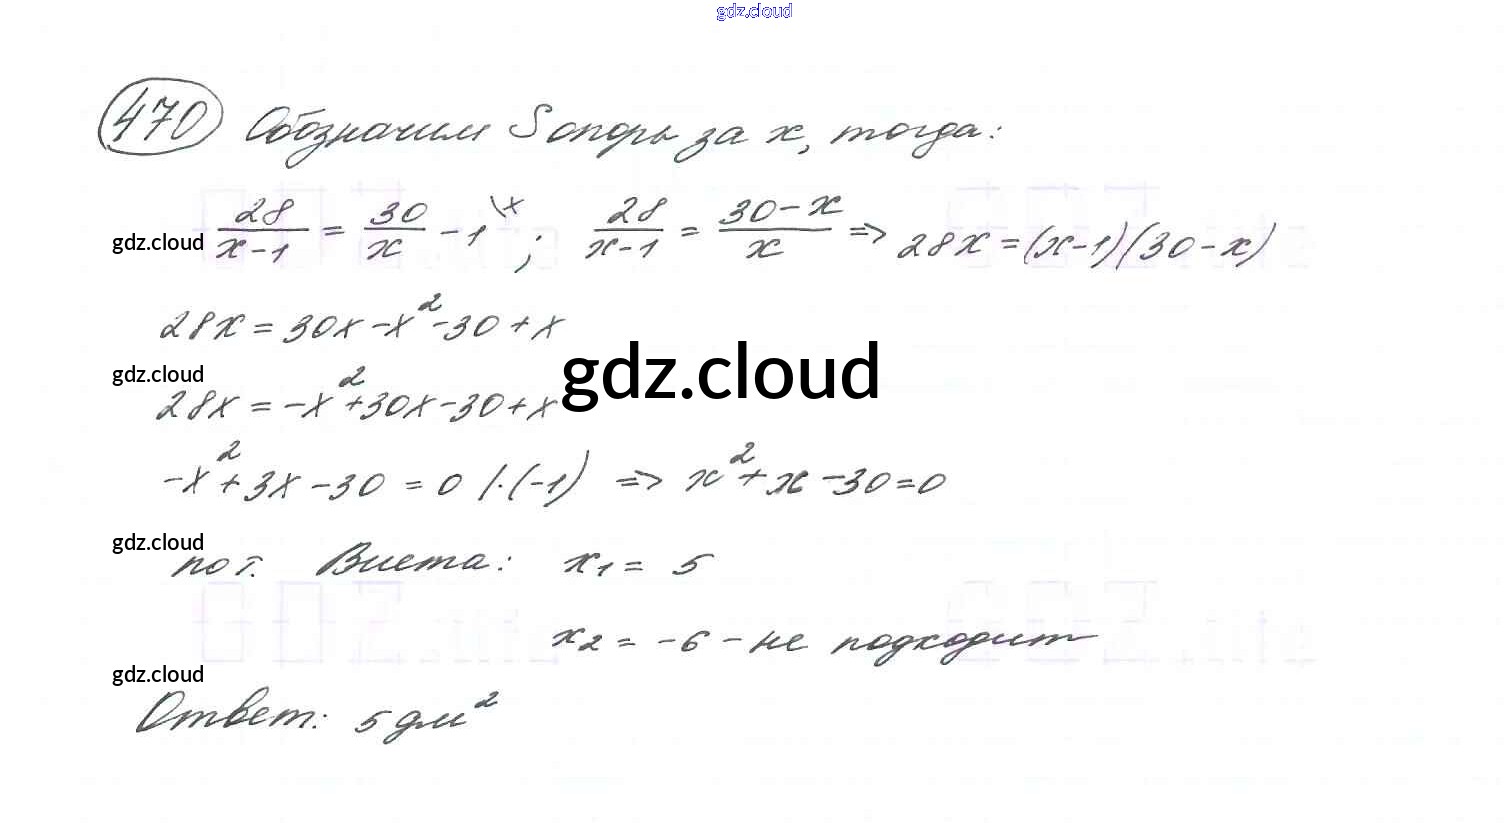 gdz.cloud
470 Обозначим S опоры за x, тогда:
28/(x-1) = 30/x - 1 \x ; 28/(x-1) = (30-x)/x => 28x = (x-1)(30-x)
gdz.cloud
28x = 30x - x² - 30 + x
gdz.cloud
gdz.cloud
28x = -x² + 30x - 30 + x
-x² + 3x - 30 = 0 /·(-1) => x² + x - 30 = 0
gdz.cloud
по т. Виета: x₁ = 5
x₂ = -6 - не подходит
gdz.cloud
Ответ: 5 дм²